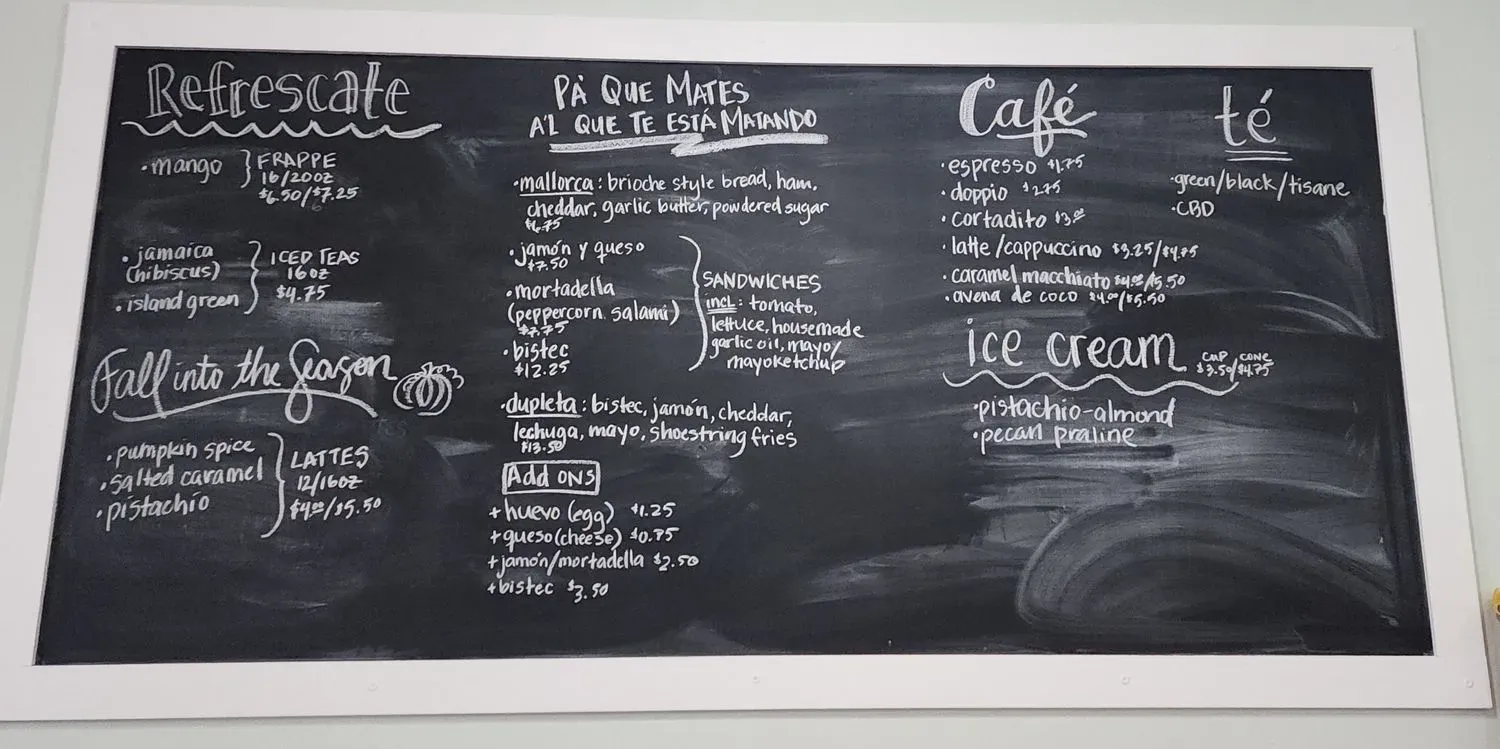 Refrescate
• mango } FRAPPE
16/20oz
$6.50/$7.25
• jamaica
(hibiscus)
• island green
} ICED TEAS
16oz
$4.75
Fall into the Season
• pumpkin spice
• salted caramel
• pistachio
} LATTES
12/16oz
$4.00/$5.50
PÀ QUE MATES
A'L QUE TE ESTÁ MATANDO
• mallorca: brioche style bread, ham,
cheddar, garlic butter, powdered sugar
$6.75
• jamón y queso
$7.50
• mortadella
(peppercorn salami)
$7.75
• bistec
$12.25
SANDWICHES
incl: tomato,
lettuce, housemade
garlic oil, mayo/
mayoketchup
• dupleta: bistec, jamón, cheddar,
lechuga, mayo, shoestring fries
$13.50
Add ONS
+ huevo (egg) $1.25
+ queso (cheese) $0.75
+ jamón/mortadella $2.50
+ bistec $3.50
Café
• espresso $1.75
• doppio $2.75
• cortadito $3.00
• latte/cappuccino $3.25/$4.75
• caramel macchiato $4.00/$5.50
• avena de coco $4.00/$5.50
té
• green/black/tisane
• CBD
ice cream CUP $3.50/ CONE $4.75
• pistachio-almond
• pecan praline